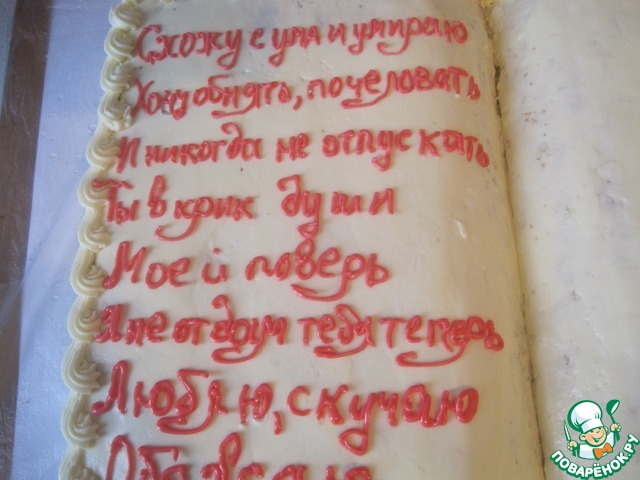 Схожу с ума и умираю
Хочу обнять, почеловать
И никогда не отпускать
Ты в крик души
Моей поверь
Я не отдам тебя теперь
Люблю, скучаю
ПОВАРЁНОК.РУ